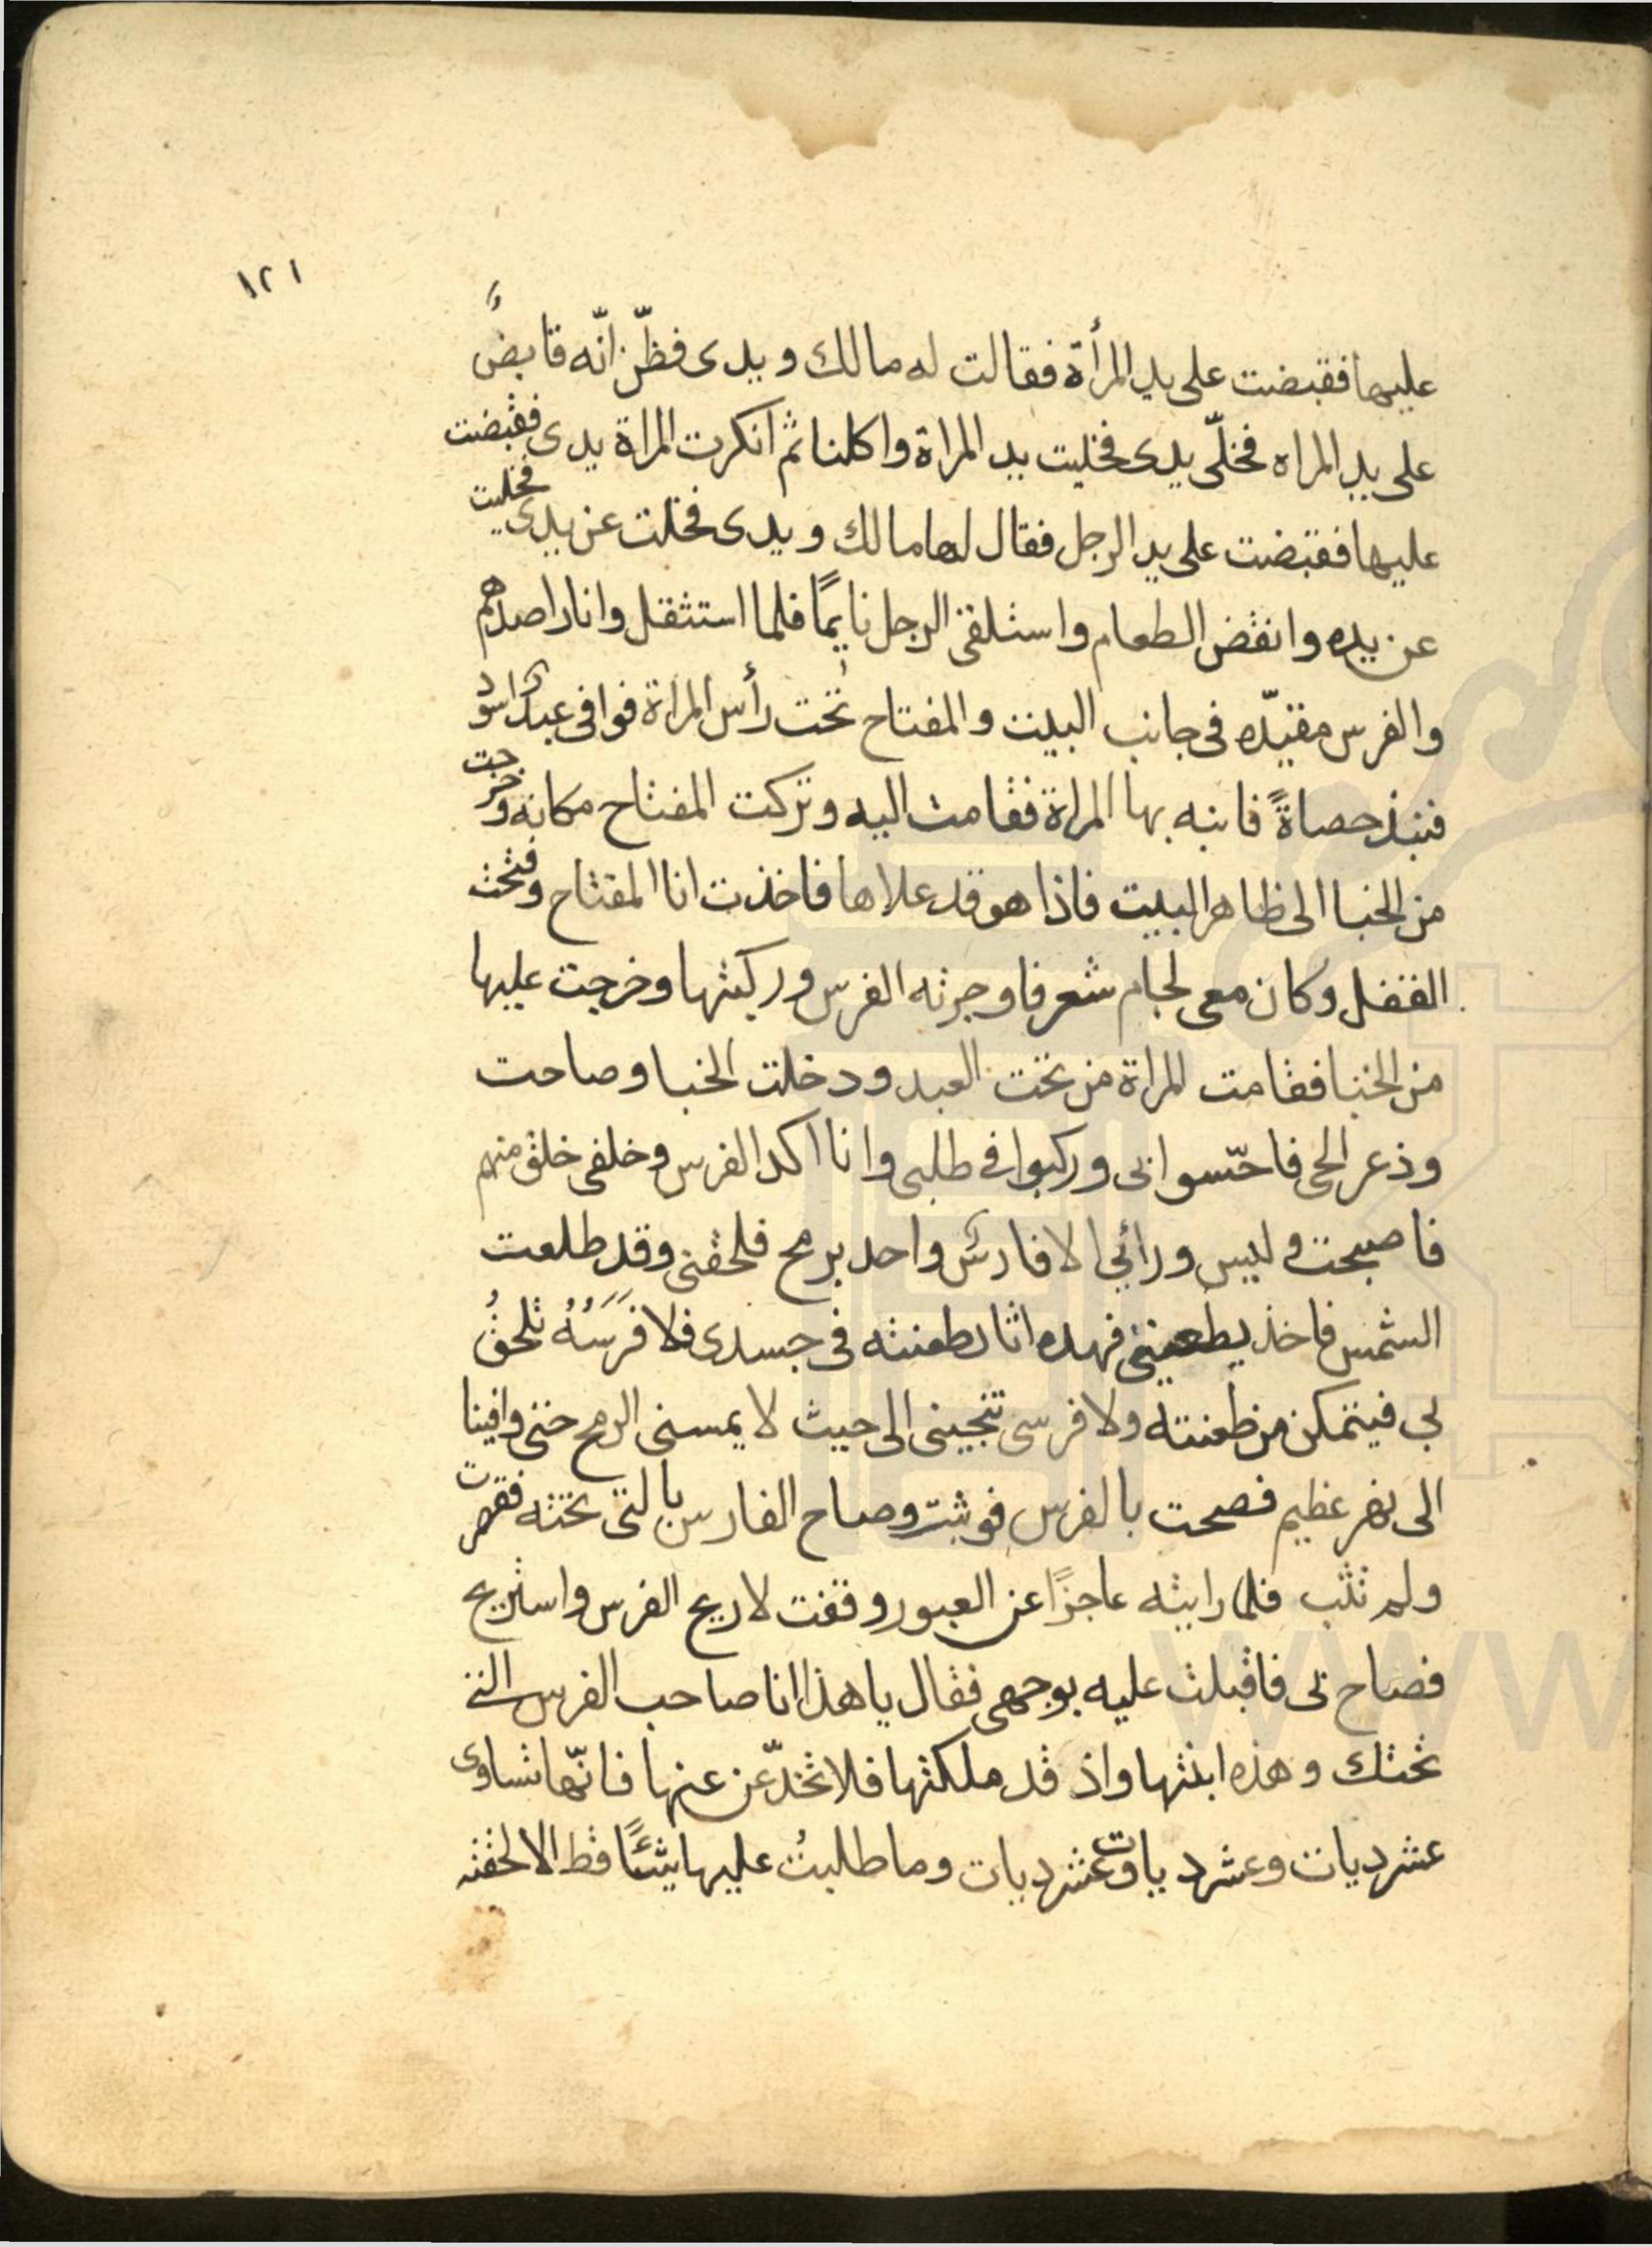 ١٢١
عليها فقبضت على يد المرأة فقالت له مالك ويدى فظنّ انّه قابضٌ
على يد المراه فخلّى يدى فخليت يد المراة واكلنا ثم انكرت المراة يدى فقبضت
عليها فقبضت على يد الرجل فقال لها مالك ويدى فخلت عن يدى فخليت
عن يده وانقض الطعام واستلقى الرجل نايمًا فلما استثقل وانا راصدهم
والفرس مقيّده فى جانب البيت والمفتاح تحت رأس المراة فوافى عبد اسود
فنبذ حصاةً فانبه بها المراة فقامت اليه وتركت المفتاح مكانه وخرجت
من الخبا الى ظاهر البيت فاذا هو قد علاها فاخذت انا المفتاح وفتحت
القفل وكان معى لجام شعر فاوجرته الفرس وركبتها وخرجت عليها
من الخبا فقامت المراة من تحت العبد ودخلت الخبا وصاحت
وذعر الحى فاحسّوا بى وركبوا فى طلبى وانا اكد الفرس وخلفى خلق منهم
فاصبحت وليس ورائي الا فارس واحد برمح فلحقنى وقد طلعت
الشمس فاخذ يطعننى فهده اثار طعنته فى جسدى فلا فَرَسُهُ تلحقُ
بي فيتمكن من طعنته ولا فرسى تنجينى الى حيث لا يمسنى الرمح حتى وافينا
الى نهر عظيم فصحت بالفرس فوثبت وصاح الفارس بالتى تحته فقصرت
ولم تثب فلما رايته عاجزًا عن العبور وقفت لاريح الفرس واستريح
فصاح بى فاقبلت عليه بوجهى فقال يا هذا انا صاحب الفرس التى
تحتك وهذه ابنتها واذ قد ملكتها فلا تخدّعن عنها فانّها تساوى
عشر ديات وعشر ديات وعشر ديات وما طلبتُ عليها شيئًا قط الا لحقته